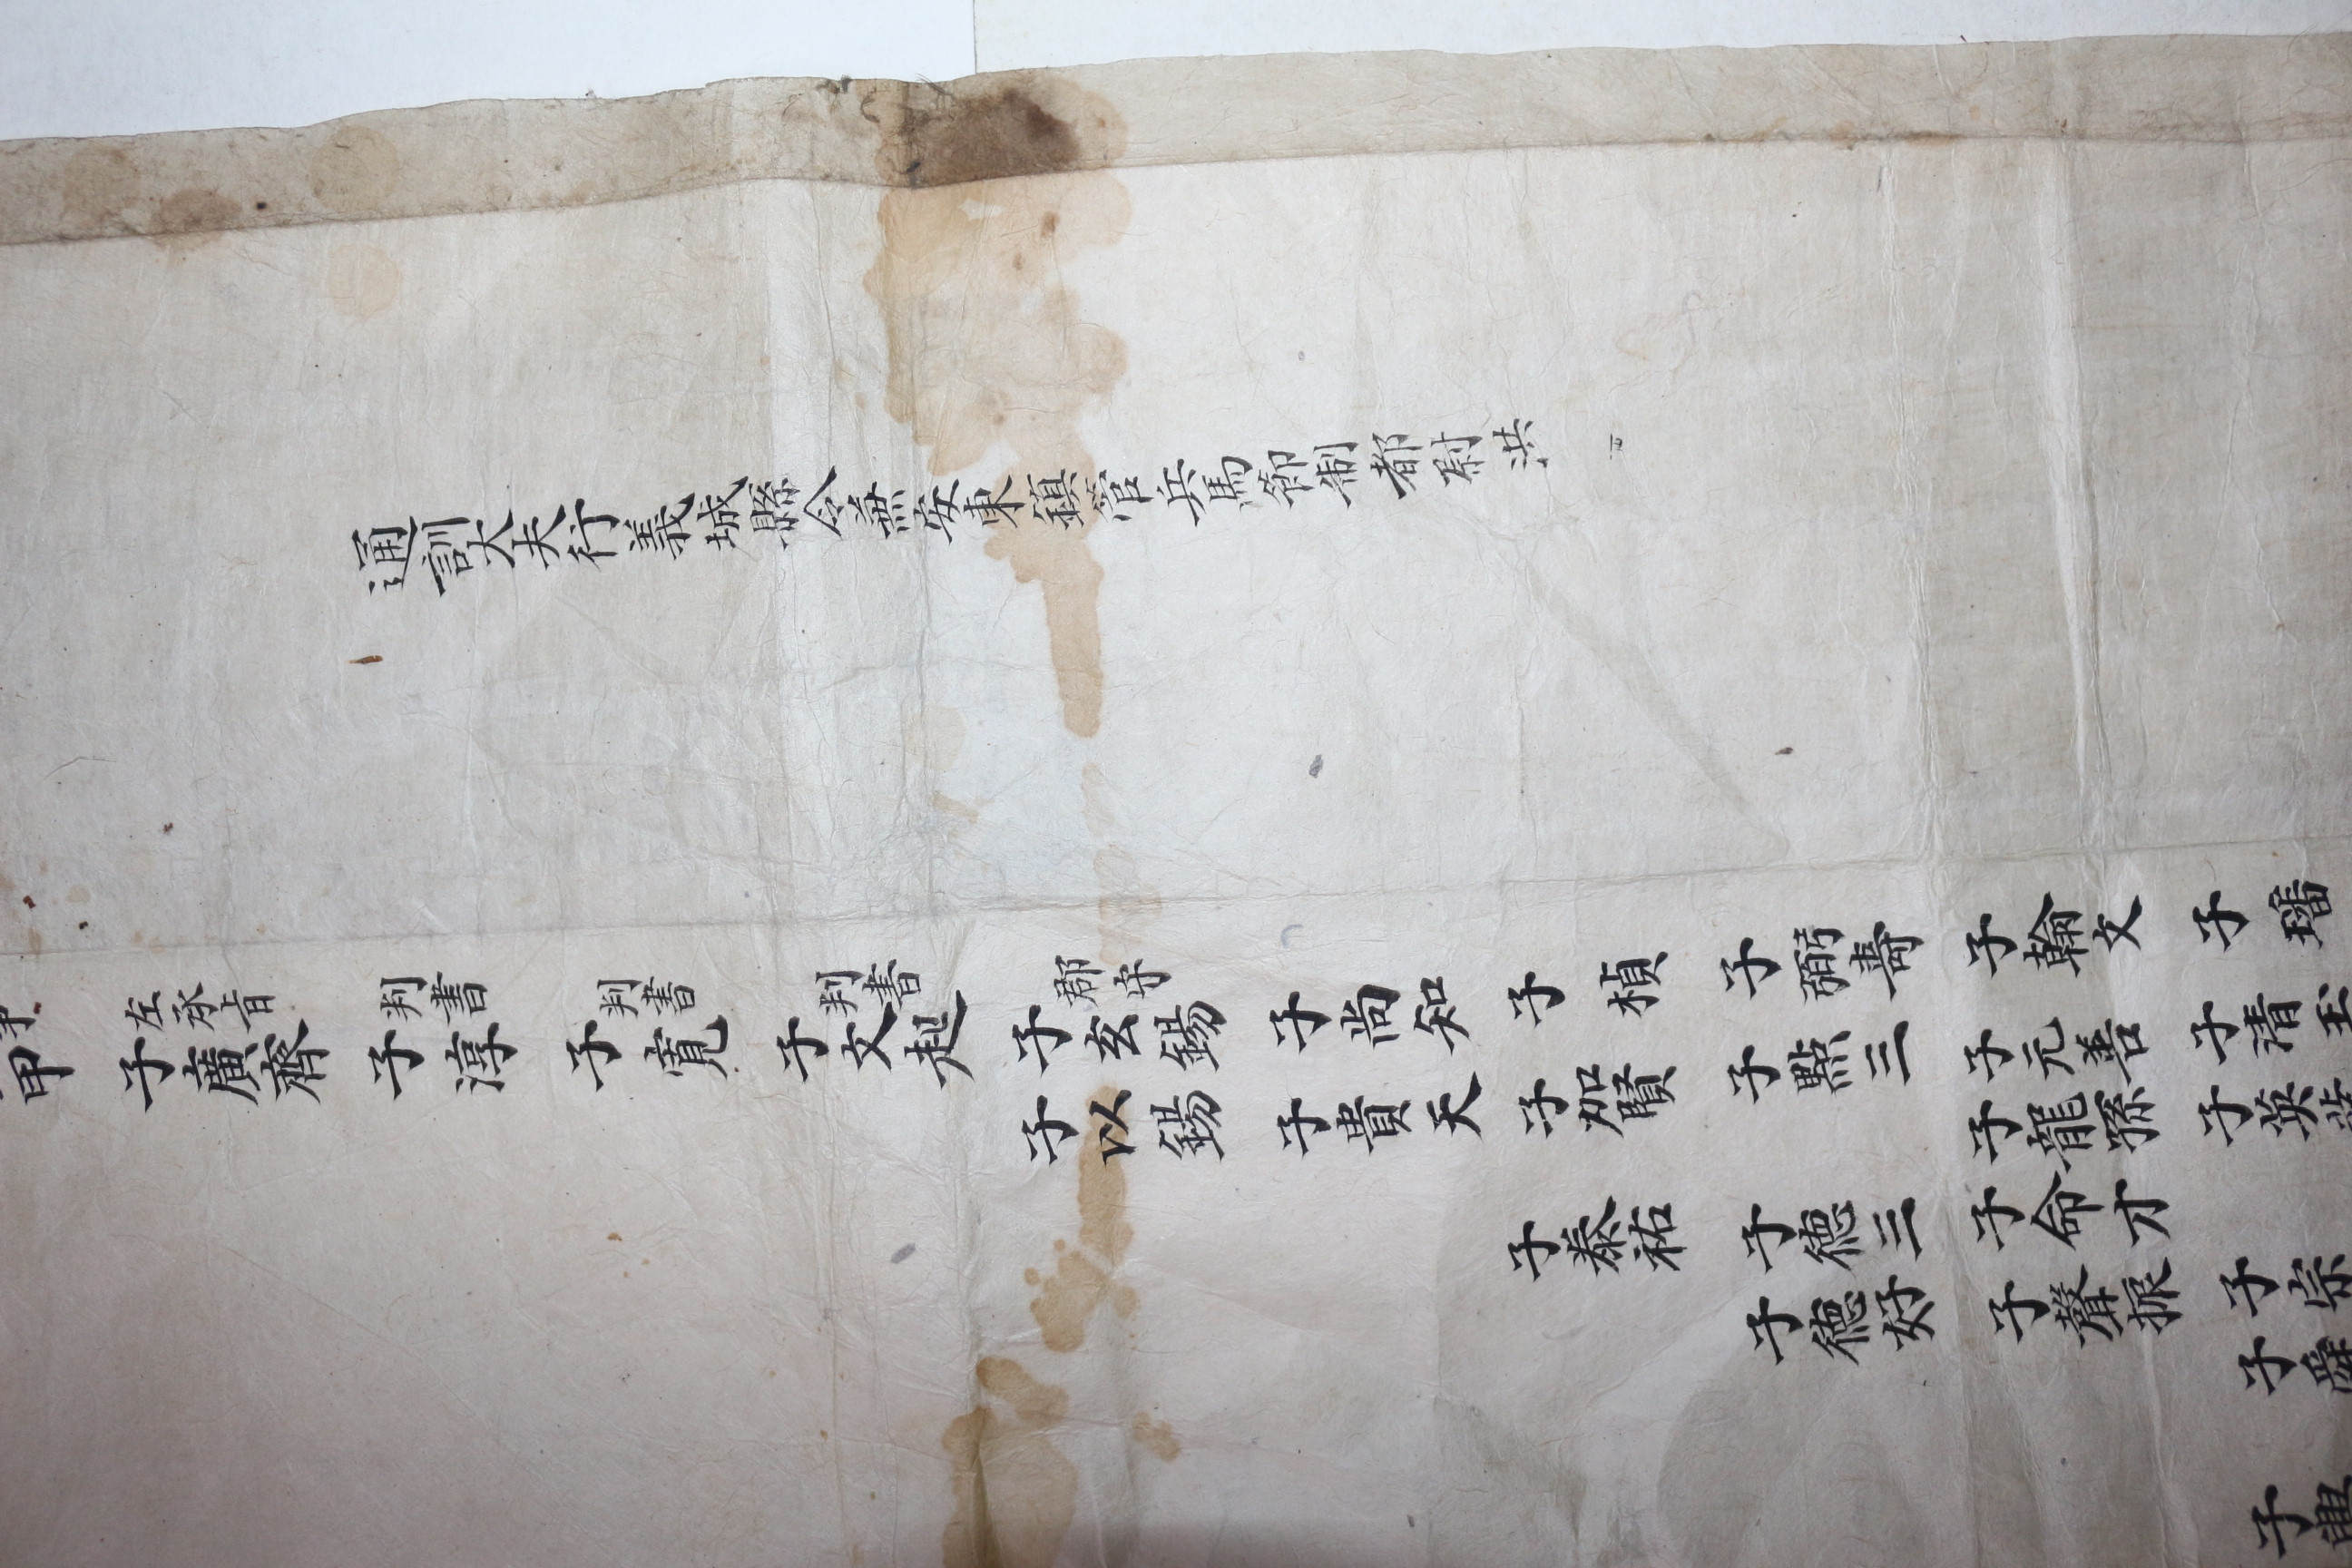 通訓大夫行義城縣令兼安東鎮管兵馬節制都尉洪
左承旨 判書 判書 判書 郡守
甲 子廣齊 子淳 子寬 子文 子玄錫 子尚知 子楨 子弼壽 子翰文 子璠
子以錫 子貴天 子加 子點三 子元善 子清玉
子龍孫 子英
子泰祐 子德三 子命才 子崇
子德好 子聲振 子舜
子興